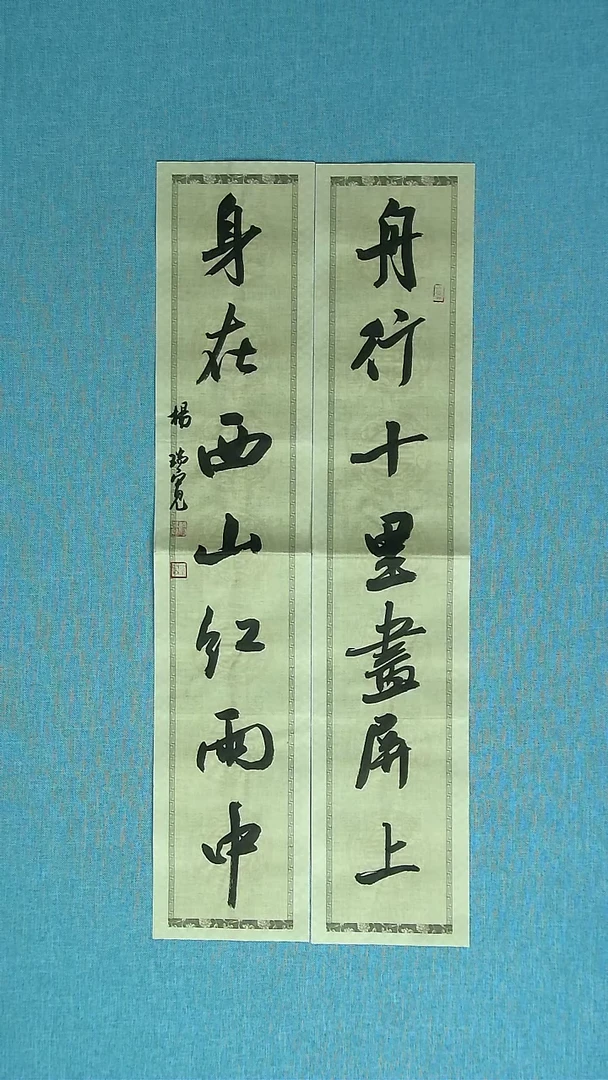 舟行十里畫屏上
身在西山红雨中
楊瑞寬